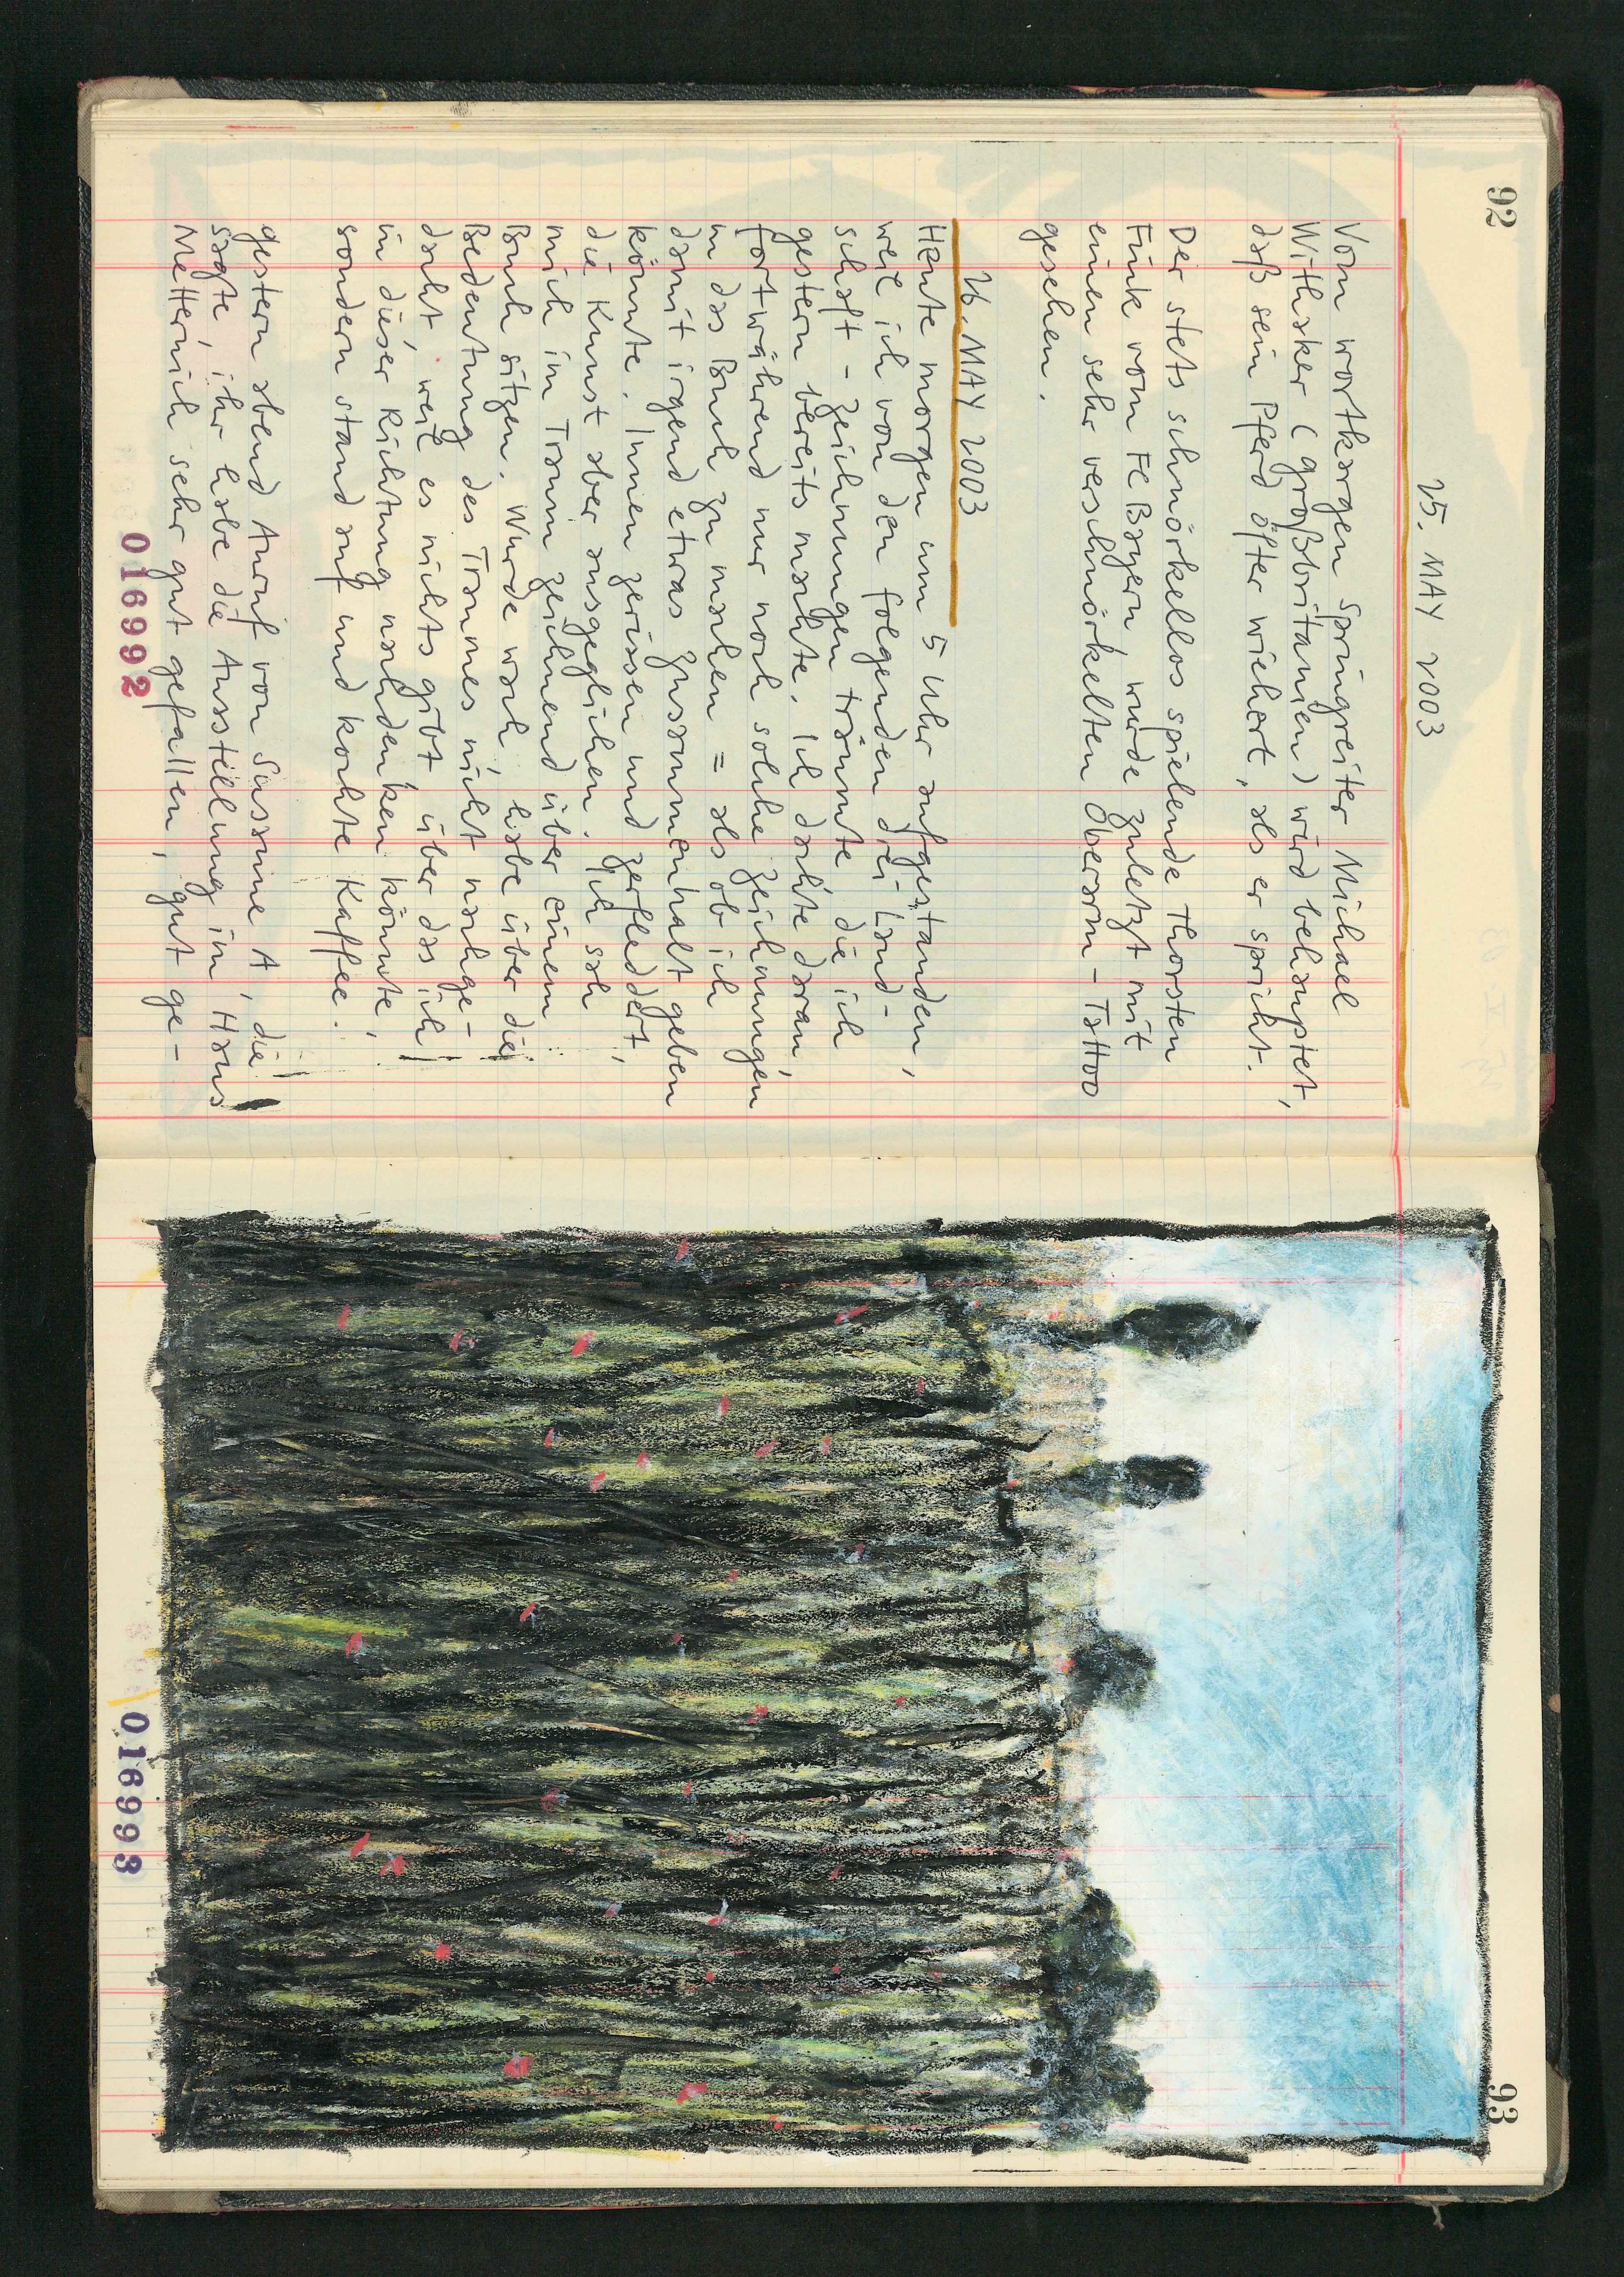 92
25. MAY 2003
Vom wortkargen Springreiter Michael
Withaker (Großbritanien) wird behauptet,
daß sein Pferd öfter wiehert, als er spricht.
Der stets schnörkellos spielende Thorsten
Fink vom FC Bayern wurde zuletzt mit
einen sehr verschnörkelten Oberarm-Tattoo
gesehen.
26. MAY 2003
Heute morgen um 5 Uhr aufgestanden,
weil ich von den folgenden drei Land-
schaft-Zeichnungen träumte die ich
gestern bereits machte. Ich dachte daran,
fortwährend nur noch solche Zeichnungen
in das Buch zu machen = als ob ich
damit irgend etwas Zusammenhalt geben
könnte. Innen zerissen und zerfleddert,
die Kunst aber ausgeglichen. Ich sah
mich im Traum zeichnend über einem
Buch sitzen. Wurde wach, habe über die
Bedeutung des Traumes nicht nachge-
dacht, weil es nichts gibt, über das ich
in dieser Richtung nachdenken könnte,
sondern stand auf und kochte Kaffee.
gestern abend Anruf von Susanne A, die
sagte, ihr habe die Ausstellung im Haus
Metternich sehr gut gefallen, gut ge-
016992
93
016993